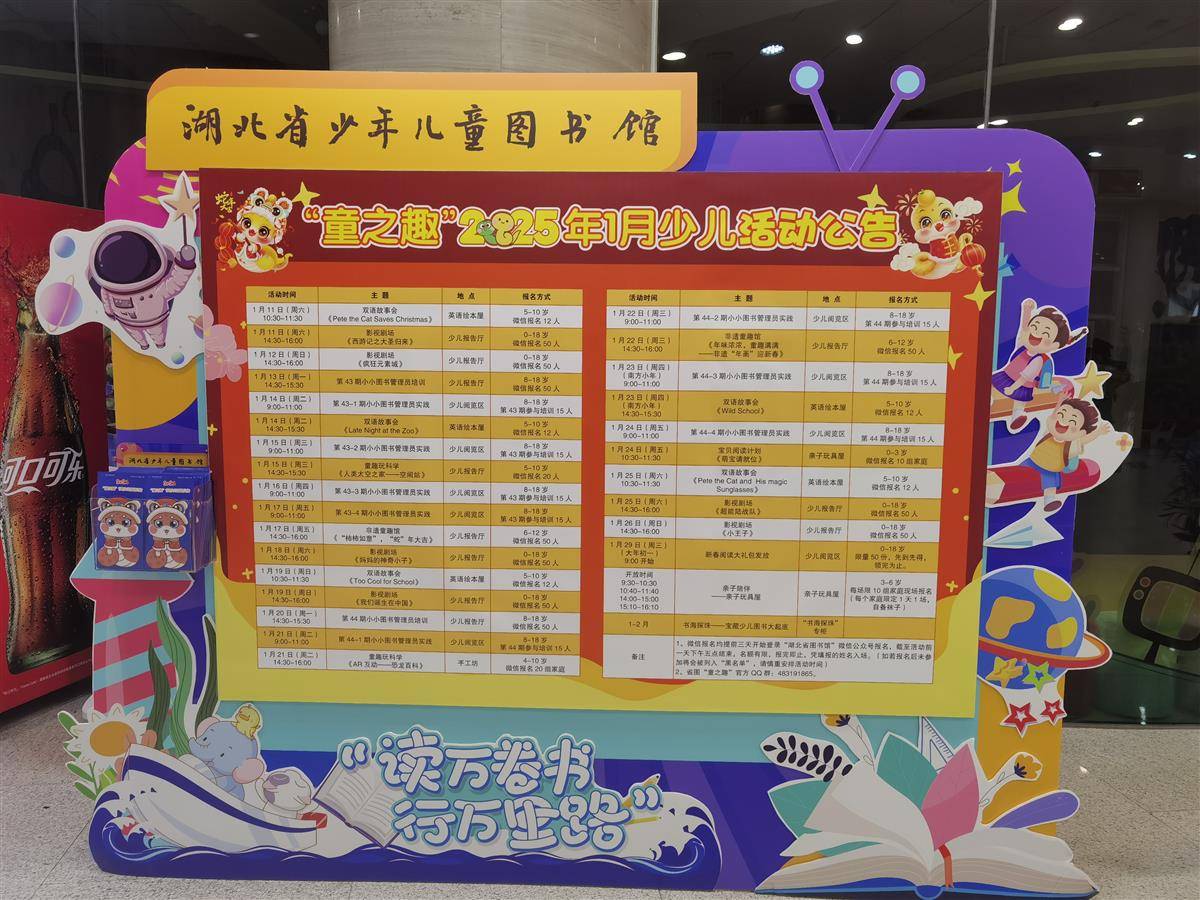 湖北省少年儿童图书馆
“童之趣”2025年1月少儿活动公告
活动时间 主题 地点 报名方式
1月11日（周六） 10:30–11:30 双语故事会 《Pete the Cat Saves Christmas》 英语绘本屋 5–10岁 微信报名12人
1月11日（周六） 14:30–16:00 影视剧场 《西游记之大圣归来》 少儿报告厅 0–18岁 微信报名50人
1月12日（周日） 14:30–16:00 影视剧场 《疯狂元素城》 少儿报告厅 0–18岁 微信报名50人
1月13日（周一） 14:30–15:30 第43期小小图书管理员培训 少儿报告厅 8–18岁 微信报名50人
1月14日（周二） 9:00–11:00 第43–1期小小图书管理员实践 少儿阅览区 8–18岁 第43期参与培训15人
1月14日（周二） 14:30–15:30 双语故事会 《Late Night at the Zoo》 英语绘本屋 5–10岁 微信报名12人
1月15日（周三） 9:00–11:00 第43–2期小小图书管理员实践 少儿阅览区 8–18岁 第43期参与培训15人
1月15日（周三） 14:30–15:30 童趣玩科学 《人类太空之家——空间站》 少儿报告厅 5–10岁 微信报名20人
1月16日（周四） 9:00–11:00 第43–3期小小图书管理员实践 少儿阅览区 8–18岁 第43期参与培训15人
1月17日（周五） 9:00–11:00 第43–4期小小图书管理员实践 少儿阅览区 8–18岁 第43期参与培训15人
1月17日（周五） 14:30–16:00 非遗童趣馆 《“柿柿如意”，“蛇”年大吉》 少儿报告厅 6–12岁 微信报名50人
1月18日（周六） 14:30–16:00 影视剧场 《妈妈的神奇小子》 少儿报告厅 0–18岁 微信报名50人
1月19日（周日） 10:30–11:30 双语故事会 《Too Cool for School》 英语绘本屋 5–10岁 微信报名12人
1月19日（周日） 14:30–16:00 影视剧场 《我们诞生在中国》 少儿报告厅 0–18岁 微信报名50人
1月20日（周一） 14:30–15:30 第44期小小图书管理员培训 少儿报告厅 8–18岁 微信报名50人
1月21日（周二） 9:00–11:00 第44–1期小小图书管理员实践 少儿阅览区 8–18岁 第44期参与培训15人
1月21日（周二） 14:30–16:00 童趣玩科学 《AR互动——恐龙百科》 手工坊 4–10岁 微信报名20组家庭
活动时间 主题 地点 报名方式
1月22日（周三） 9:00–11:00 第44–2期小小图书管理员实践 少儿阅览区 8–18岁 第44期参与培训15人
1月22日（周三） 14:30–16:00 非遗童趣馆 《年味浓浓，童趣满满 ——非遗“年画”迎新春》 少儿报告厅 6–12岁 微信报名50人
1月23日（周四） （南方小年） 9:00–11:00 第44–3期小小图书管理员实践 少儿阅览区 8–18岁 第44期参与培训15人
1月23日（周四） （南方小年） 14:30–15:30 双语故事会 《Wild School》 英语绘本屋 5–10岁 微信报名12人
1月24日（周五） 9:00–11:00 第44–4期小小图书管理员实践 少儿阅览区 8–18岁 第44期参与培训15人
1月24日（周五） 14:30–15:30 宝贝阅读计划 《萌宝请就位》 亲子玩具屋 0–3岁 微信报名10组家庭
1月25日（周六） 10:30–11:30 双语故事会 《Pete the Cat and His magic Sunglasses》 英语绘本屋 5–10岁 微信报名12人
1月25日（周六） 14:30–16:00 影视剧场 《超能陆战队》 少儿报告厅 0–18岁 微信报名50人
1月26日（周日） 14:30–16:00 影视剧场 《小王子》 少儿报告厅 0–18岁 微信报名50人
1月29日（周三） （大年初一） 9:00开始 新春阅读大礼包发放 少儿阅览区 0–18岁 限量50份，先到先得， 领完为止。
开放时间 9:30–10:30 10:40–11:40 14:00–15:00 15:10–16:10 亲子陪伴 ——亲子玩具屋 亲子玩具屋 3–6岁 每场限10组家庭现场报名 （每个家庭限定1天1场， 自备袜子）
1–2月 书海探珠——宝藏少儿图书大起底 “书海探珠” 专柜
备注 1、微信报名均提前三天开始登录“湖北省图书馆”微信公众号报名，截至活动前
一天下午五点结束，名额有限，报完即止。凭填报的姓名入场。（如若报名后未参
加将会被列入“黑名单”，请慎重安排活动时间）
2、省图“童之趣”官方QQ群：483191865。
可口可乐
湖北省少年儿童图书馆
“读万卷书
行万里路”